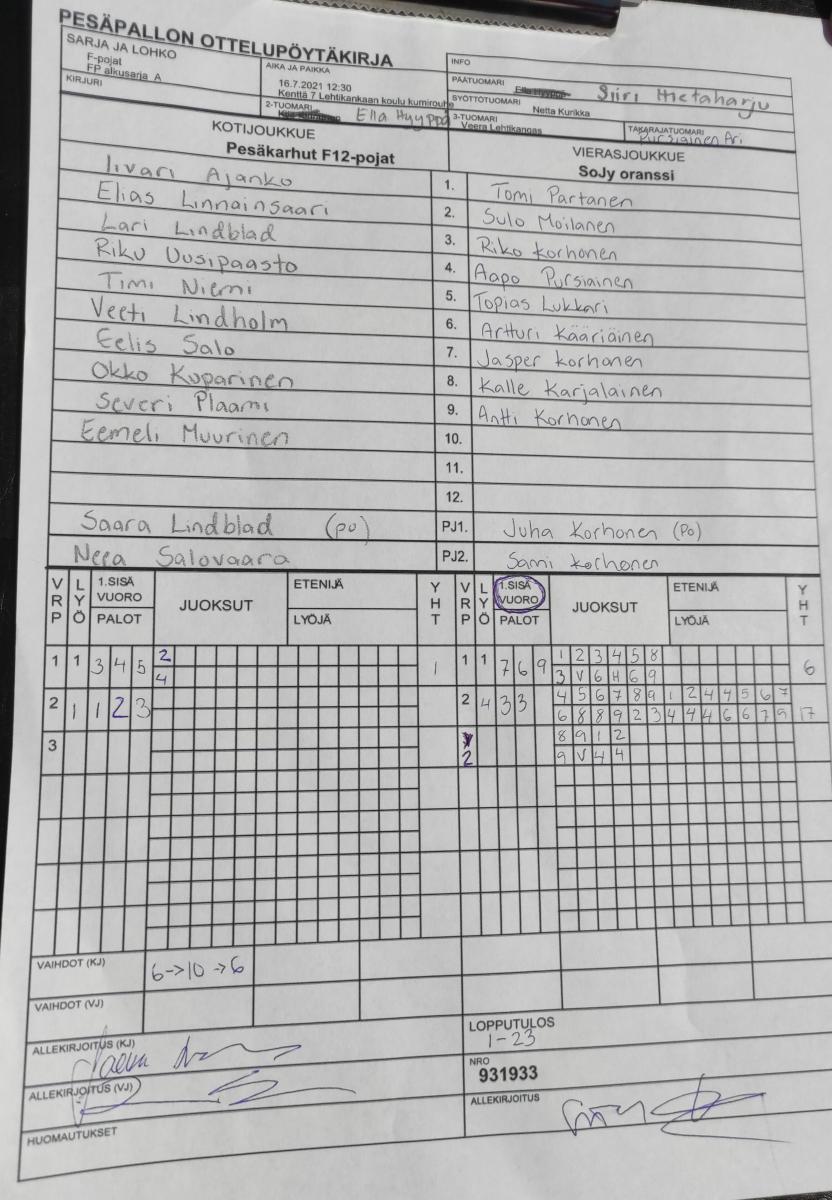 PESÄPALLON OTTELUPÖYTÄKIRJA
SARJA JA LOHKO
F-pojat
FP alkusarja A
AIKA JA PAIKKA
16.7.2021 12:30
Kenttä 7 Lehtikankaan koulu kumirouhe
INFO
PÄÄTUOMARI
Ella Hyyppä Siiri Hietaharju
KIRJURI
2-TUOMARI
Ella Hyyppä
SYÖTTÖTUOMARI
Netta Kurikka
3-TUOMARI
Veera Lehtikangas
TAKARAJATUOMARI
Pursiainen Ari
KOTIJOUKKUE
Pesäkarhut F12-pojat
VIERASJOUKKUE
SoJy oranssi
Iivari Ajanko 1. Tomi Partanen
Elias Linnainsaari 2. Sulo Moilanen
Lari Lindblad 3. Riko Korhonen
Riku Uusipaasto 4. Aapo Pursiainen
Timi Niemi 5. Topias Lukkari
Veeti Lindholm 6. Artturi Kääriäinen
Eelis Salo 7. Jasper Korhonen
Okko Kuparinen 8. Kalle Karjalainen
Severi Plaami 9. Antti Korhonen
Eemeli Muurinen 10.
11.
12.
Saara Lindblad (po) PJ1. Juha Korhonen (Po)
Neea Salovaara PJ2. Sami Korhonen
VRP LYÖ 1.SISÄ VUORO PALOT JUOKSUT ETENIJÄ LYÖJÄ YHT VRP LYÖ 1.SISÄ VUORO PALOT JUOKSUT ETENIJÄ LYÖJÄ YHT
1 1 3 4 5 2 1 1 1 7 6 9 1 2 3 4 5 8 6
4 3 V 6 H 6 9
2 1 1 2 3 2 4 3 3 4 5 6 7 8 9 1 2 4 4 5 6 7 17
6 8 8 9 2 3 4 4 4 6 6 7 9
3 2 8 9 1 2
9 V 4 4
VAIHDOT (KJ) 6->10->6
VAIHDOT (VJ)
ALLEKIRJOITUS (KJ)
LOPPUTULOS
1-23
ALLEKIRJOITUS (VJ)
NRO
931933
HUOMAUTUKSET
ALLEKIRJOITUS